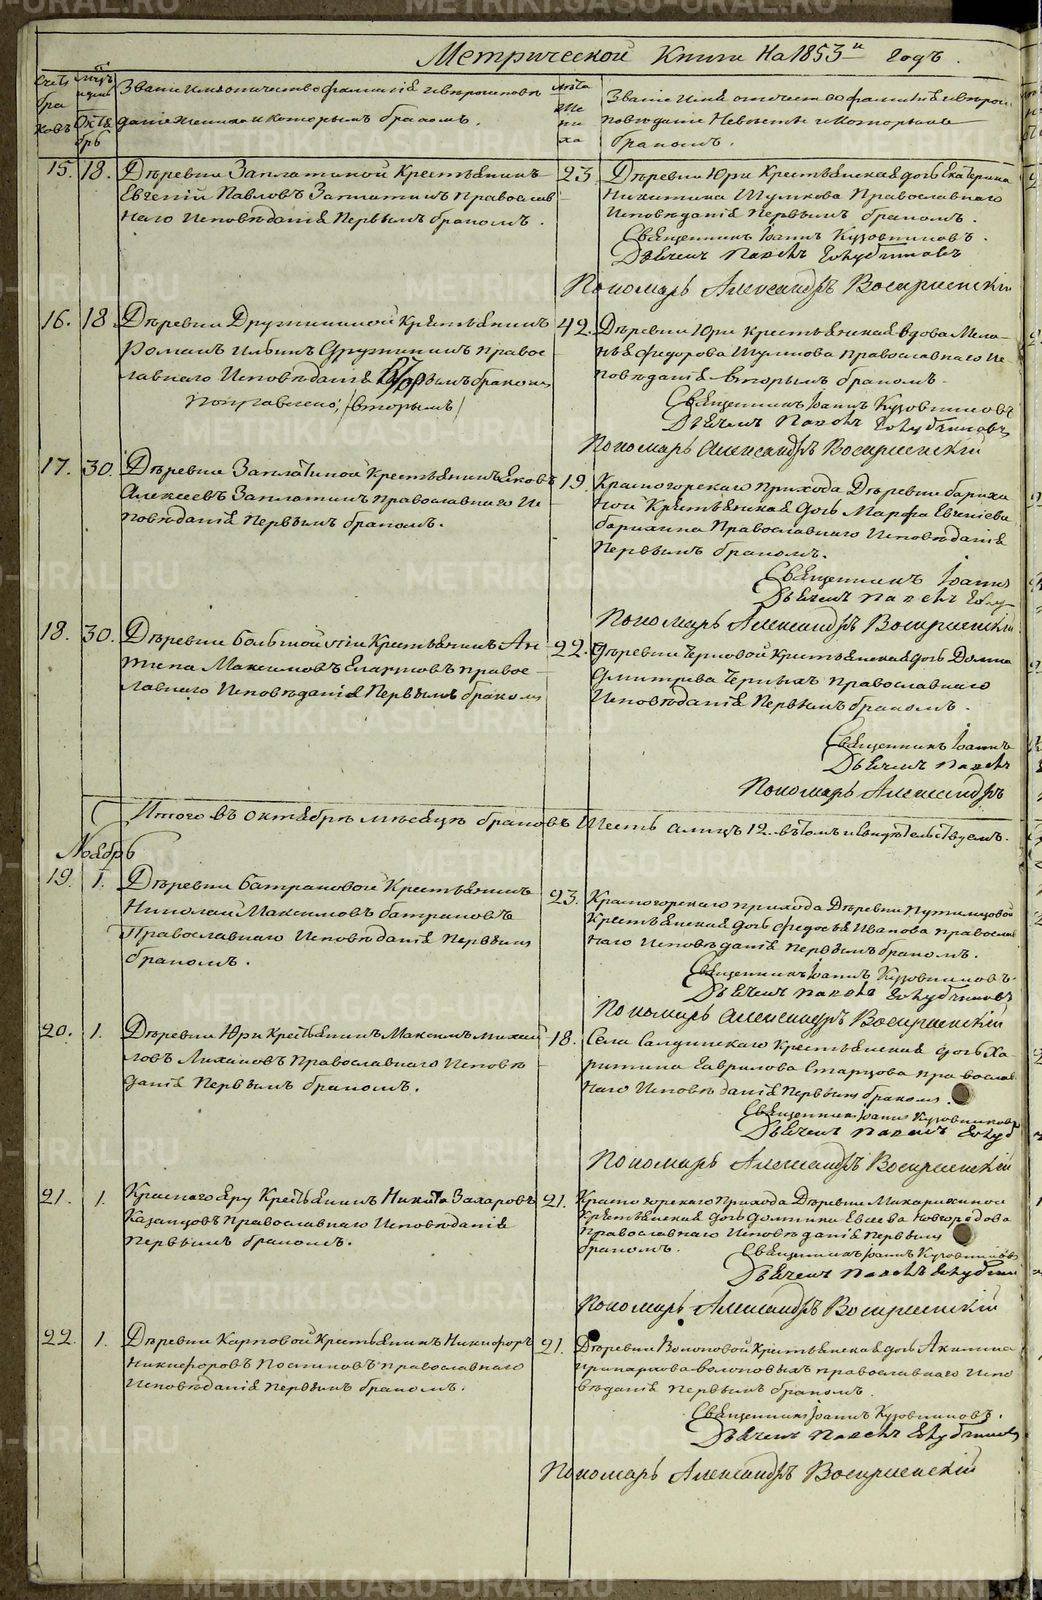 Метрической Книги На 1853й годъ.
Счетъ браковъ
Мѣсяцъ и день
Октябрь
Званіе имя отчество фамилія и вѣроисповѣданіе жениха и которымъ бракомъ.
лѣта жениха
Званіе имя отечество фамилія и вѣроисповѣданіе невѣсты и которымъ бракомъ.
15. 18. Дѣревни Заплатиной Крестьянинъ
Евгеній Павловъ Заплатинъ Православ
наго Исповѣданія Первымъ бракомъ.
23 Дѣревни Юри Крестьянская дочь Екатерина
Никитина Шумкова Православнаго
Исповѣданія Первымъ бракомъ.
Священникъ Іоаннъ Кузовниковъ.
Дьячекъ Павелъ
Пономарь Александръ Воскрисенскій
16. 18 Дѣревни Дружининой Крестьянинъ
Романъ Ильинъ Дружининъ Правос
лавнаго Исповѣданія бракомъ
Поправлено; /вторымъ/
42. Дѣревни Юри Крестьянская вдова Мела-
нья Федорова Шумкова Православнаго Ис
повѣданія вторымъ бракомъ.
Священникъ Іоаннъ Кузовниковъ
Дьячекъ Павелъ
Пономарь Александръ Воскрисенскій
17. 30 Дѣревни Заплатиной Крестьянинъ Яковъ
Алексѣевъ Заплатинъ Православнаго И
повѣданія Первымъ бракомъ.
19. Красногорскаго Прихода Дѣревни Бариха
ной Крестьянская дочь Марфа Евгеніева
Барихина Православнаго Исповѣданія
Первымъ бракомъ.
Священникъ Іоаннъ
Дьячекъ Павелъ
Пономарь Александръ Воскрисенскій
18. 30. Дѣревни Крестьянинъ Ан
типа Максимовъ Правос-
лавнаго Исповѣданія Первымъ бракомъ
22. Дѣревни Черновой Крестьянская дочь Домна
Дмитріева Черныхъ Православнаго
Исповѣданія Первымъ бракомъ.
Священникъ Іоаннъ
Дьячекъ Павелъ
Пономарь Александръ
Итого въ октябрѣ мѣсяцѣ браковъ Шесть а лицъ 12. въ томъ и свидѣтельствуемъ.
Ноябрь
19. 1. Дѣревни Батраковой Крестьянинъ
Николай Максимовъ Батраковъ
Православнаго Исповѣданія Первымъ
бракомъ.
23. Красногорскаго прихода Дѣревни Путимцовой
Крестьянская дочь Федосья Иванова Православ
наго Исповѣданія Первымъ бракомъ.
Священникъ Іоаннъ Кузовниковъ.
Дьячекъ Павелъ
Пономарь Александръ Воскрисенскій
20. 1. Дѣревни Юри Крестьянинъ Максимъ Михаи
ловъ Лихановъ Православнаго Исповѣ
данія Первымъ бракомъ.
18. Села Салдинскаго Крестьянская дочь Ха-
ритина Гаврилова Старцова Православ
наго Исповѣданія Первымъ бракомъ.
Священникъ Іоаннъ Кузовниковъ
Дьячекъ Павелъ
Пономарь Александръ Воскрисенскій
21. 1. Краснаго Яру Крестьянинъ Никита Захаровъ
Казанцовъ Православнаго Исповѣданія
Первымъ бракомъ.
21. Красногорскаго Прихода Дѣревни Махарихиной
Крестьянская дочь Домника Евсеева Новгородова
Православнаго Исповѣданія Первымъ
бракомъ.
Священникъ Іоаннъ Кузовниковъ
Дьячекъ Павелъ
Пономарь Александръ Воскрисенскій
22. 1. Дѣревни Карповой Крестьянинъ Никифоръ
Никифоровъ Постниковъ Православнаго
Исповѣданія Первымъ бракомъ.
21. Дѣревни Волоковой Крестьянская дочь Акилина
Православнаго Испо
вѣданія Первымъ бракомъ.
Священникъ Іоаннъ Кузовниковъ.
Дьячекъ Павелъ
Пономарь Александръ Воскрисенскій
METRIKI.GASO-URAL.RU